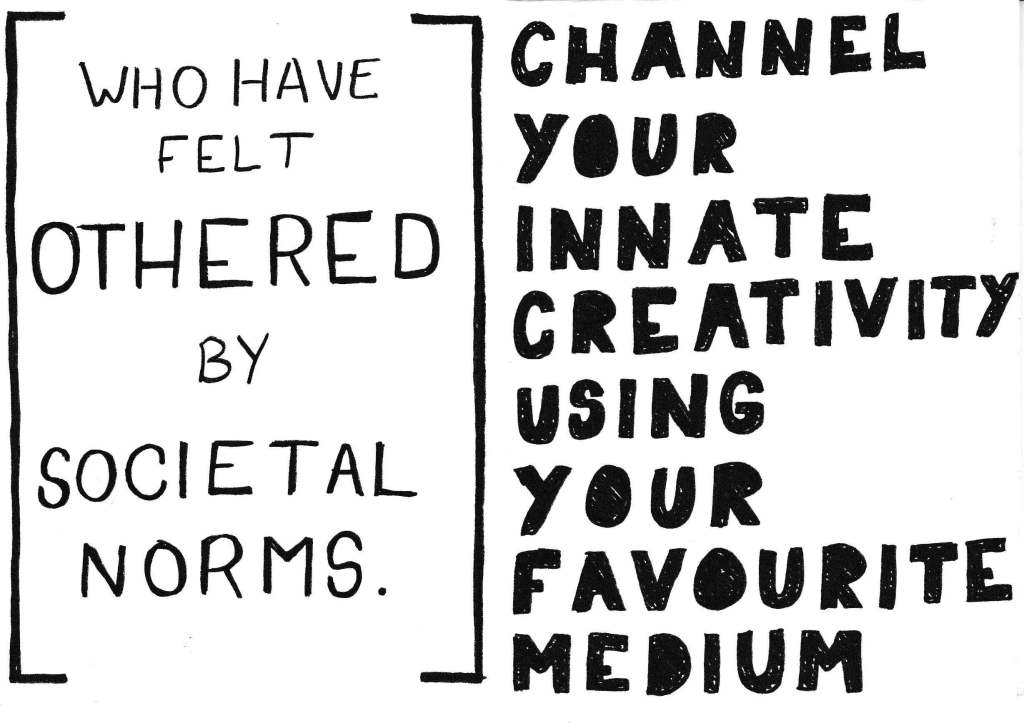 WHO HAVE
FELT
OTHERED
BY
SOCIETAL
NORMS.
CHANNEL
YOUR
INNATE
CREATIVITY
USING
YOUR
FAVOURITE
MEDIUM